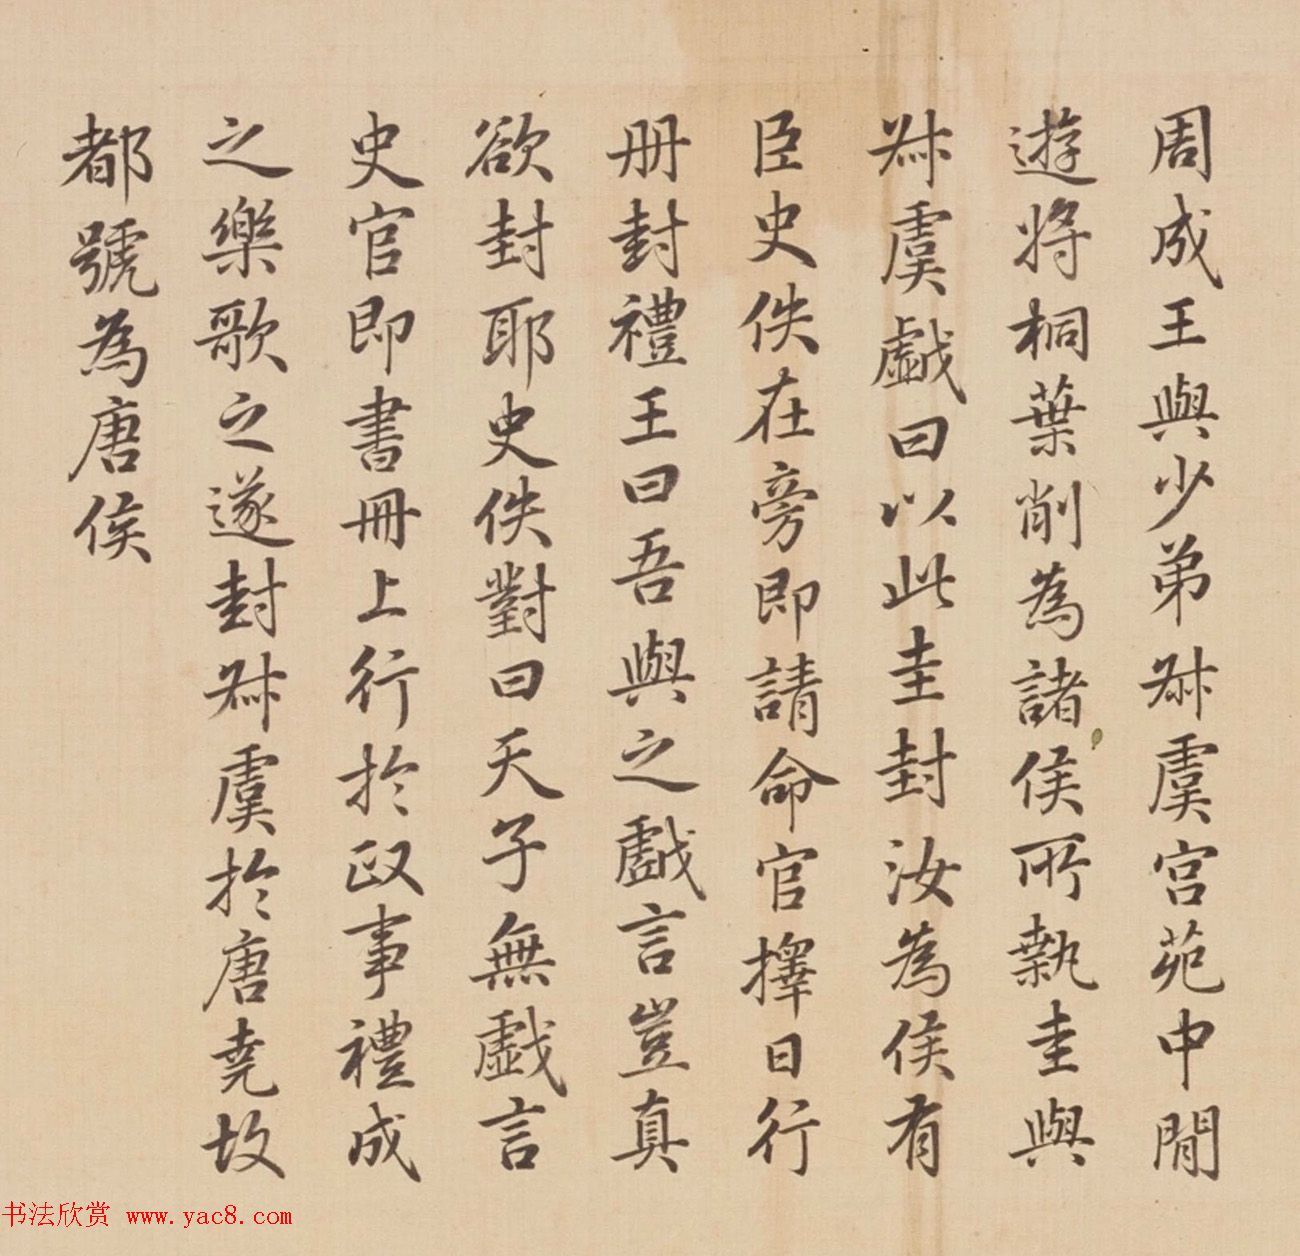 周成王與少弟叔虞宮苑中閒
遊將桐葉削為諸侯所執圭與
叔虞戲曰以此圭封汝為侯有
臣史佚在旁即請命官擇日行
册封禮王曰吾與之戲言豈真
欲封耶史佚對曰天子無戲言
史官即書冊上行於政事禮成
之樂歌之遂封叔虞於唐堯故
都號為唐侯
书法欣赏 www.yac8.com